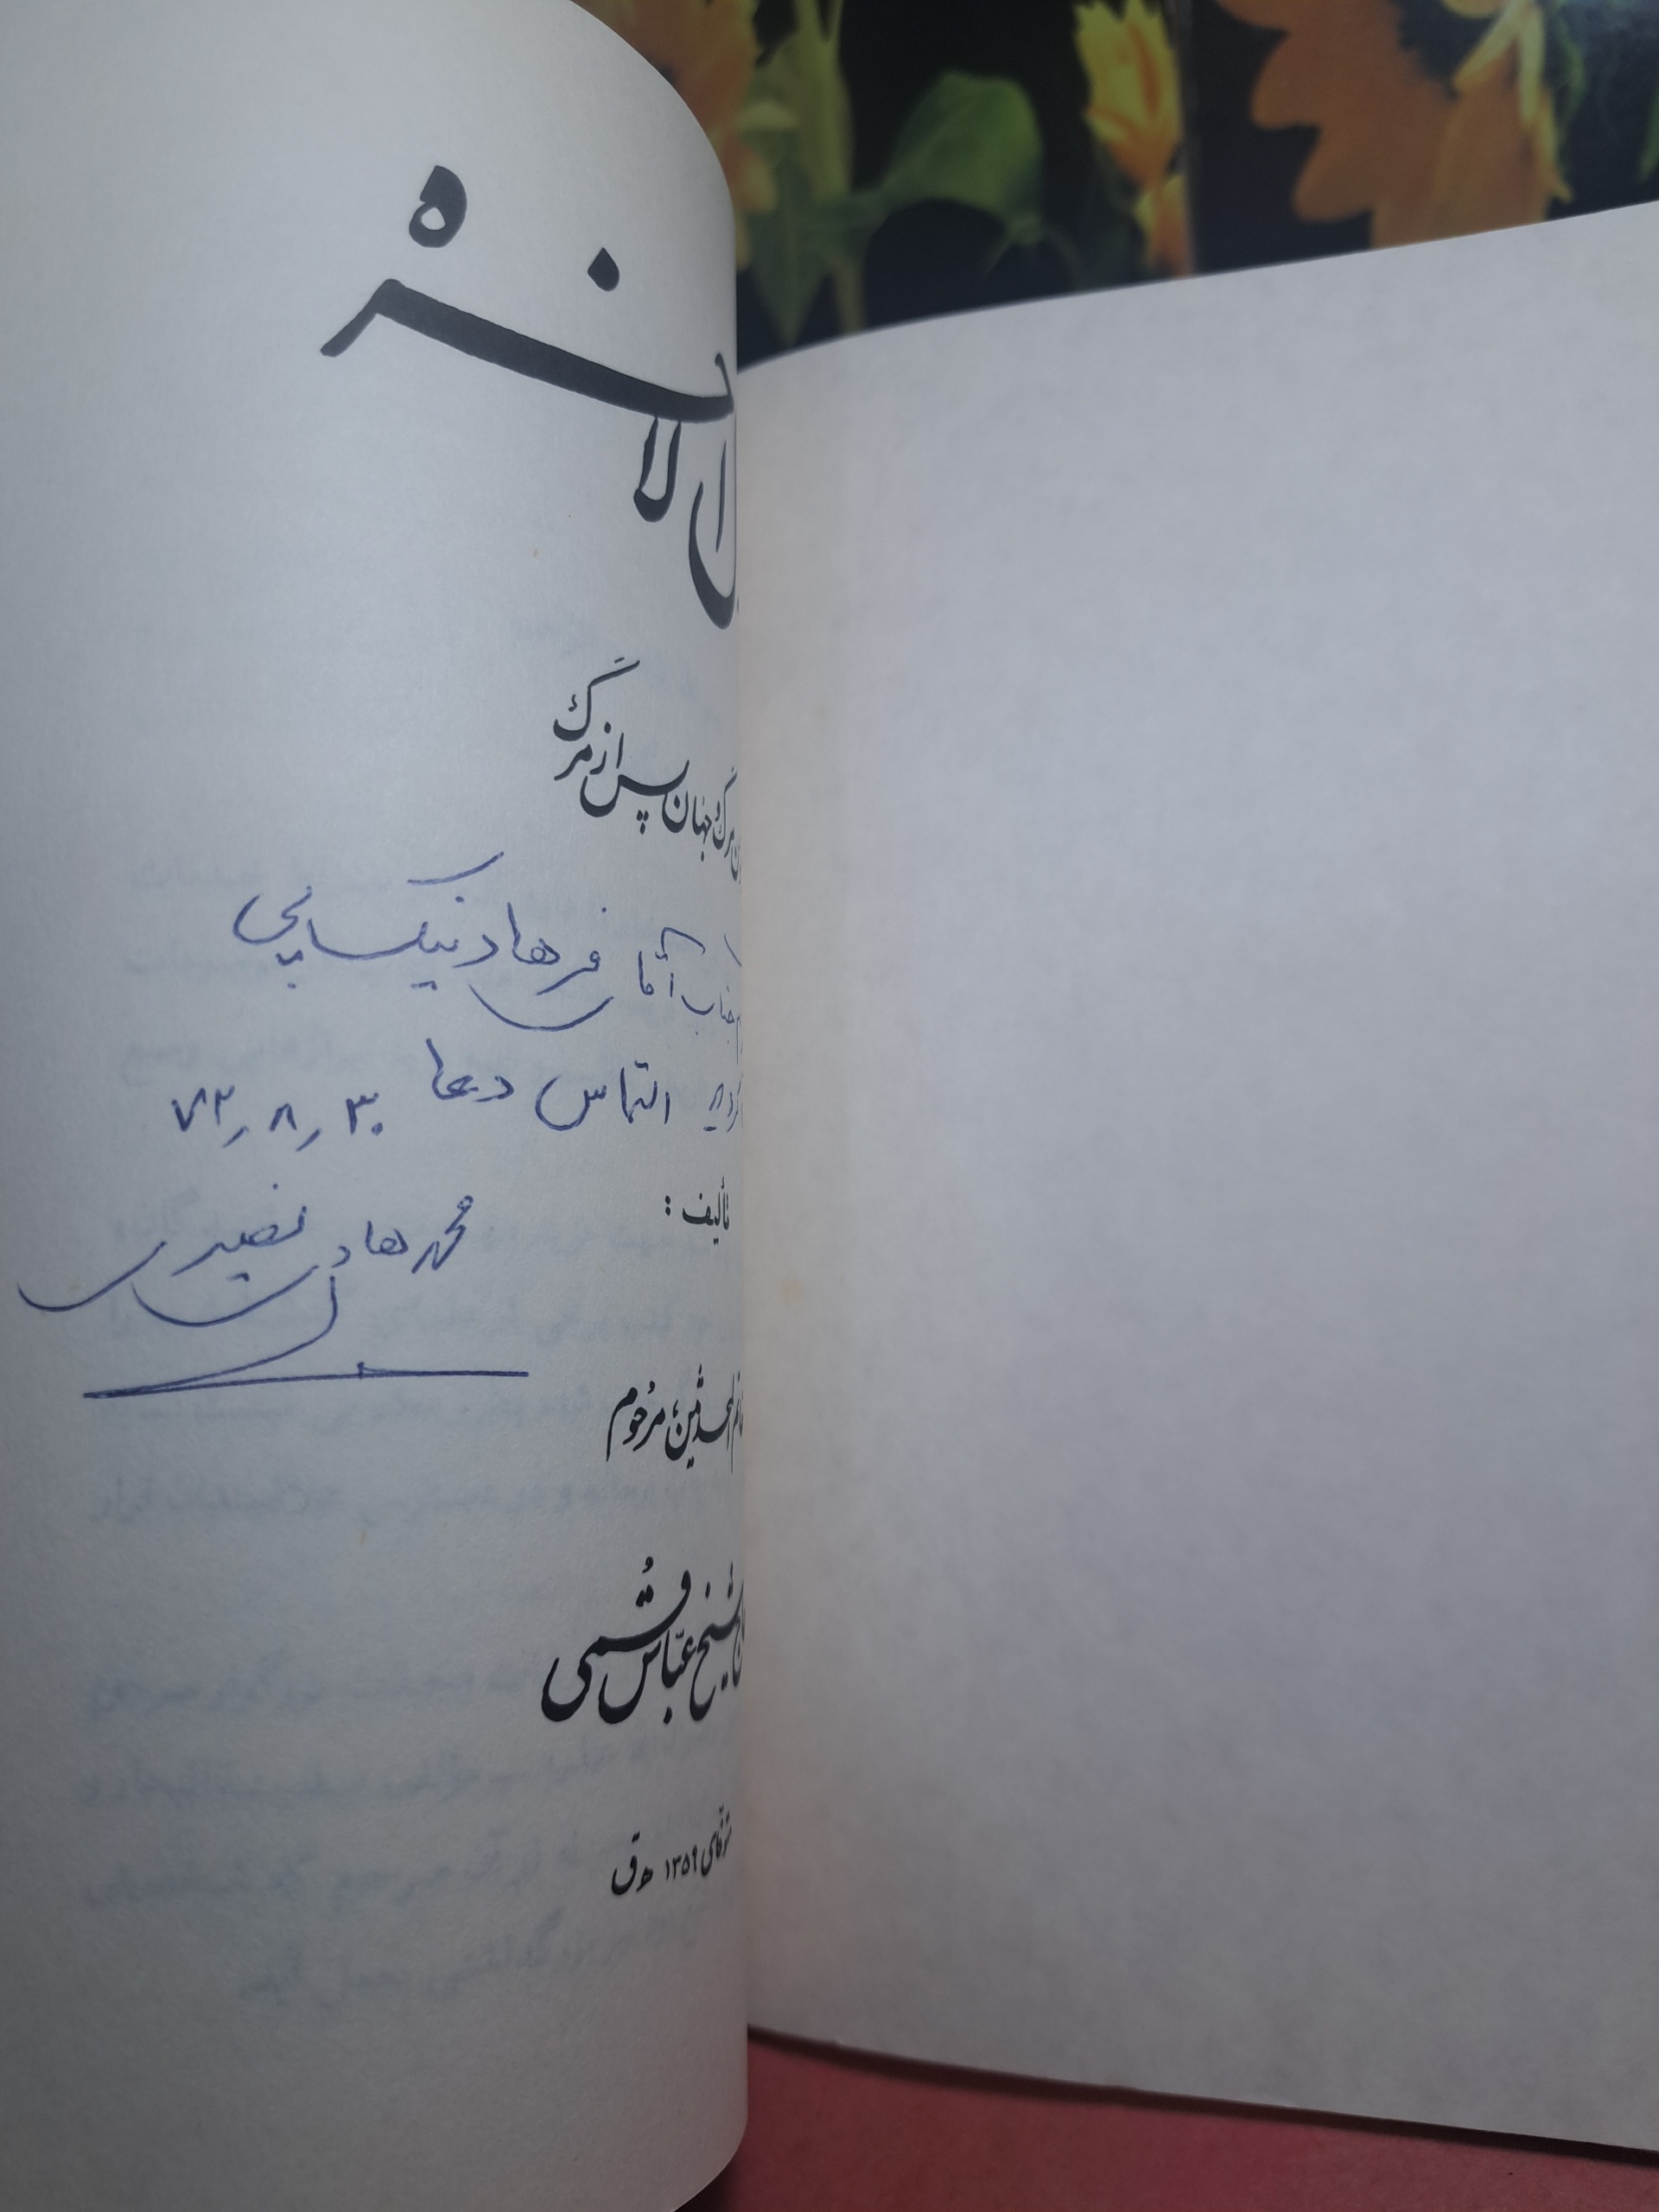 ل الاخره
مرگ و جهان پس از مرگ
جناب آقا فرهاد نیکسایی
التماس دعا ۷۳٫۸٫۳۰
تألیف:
محمدهادی نصیری
المحدثین، مرحوم
شیخ عبّاس قُمی
۱۳۵۹ ه‍ ق